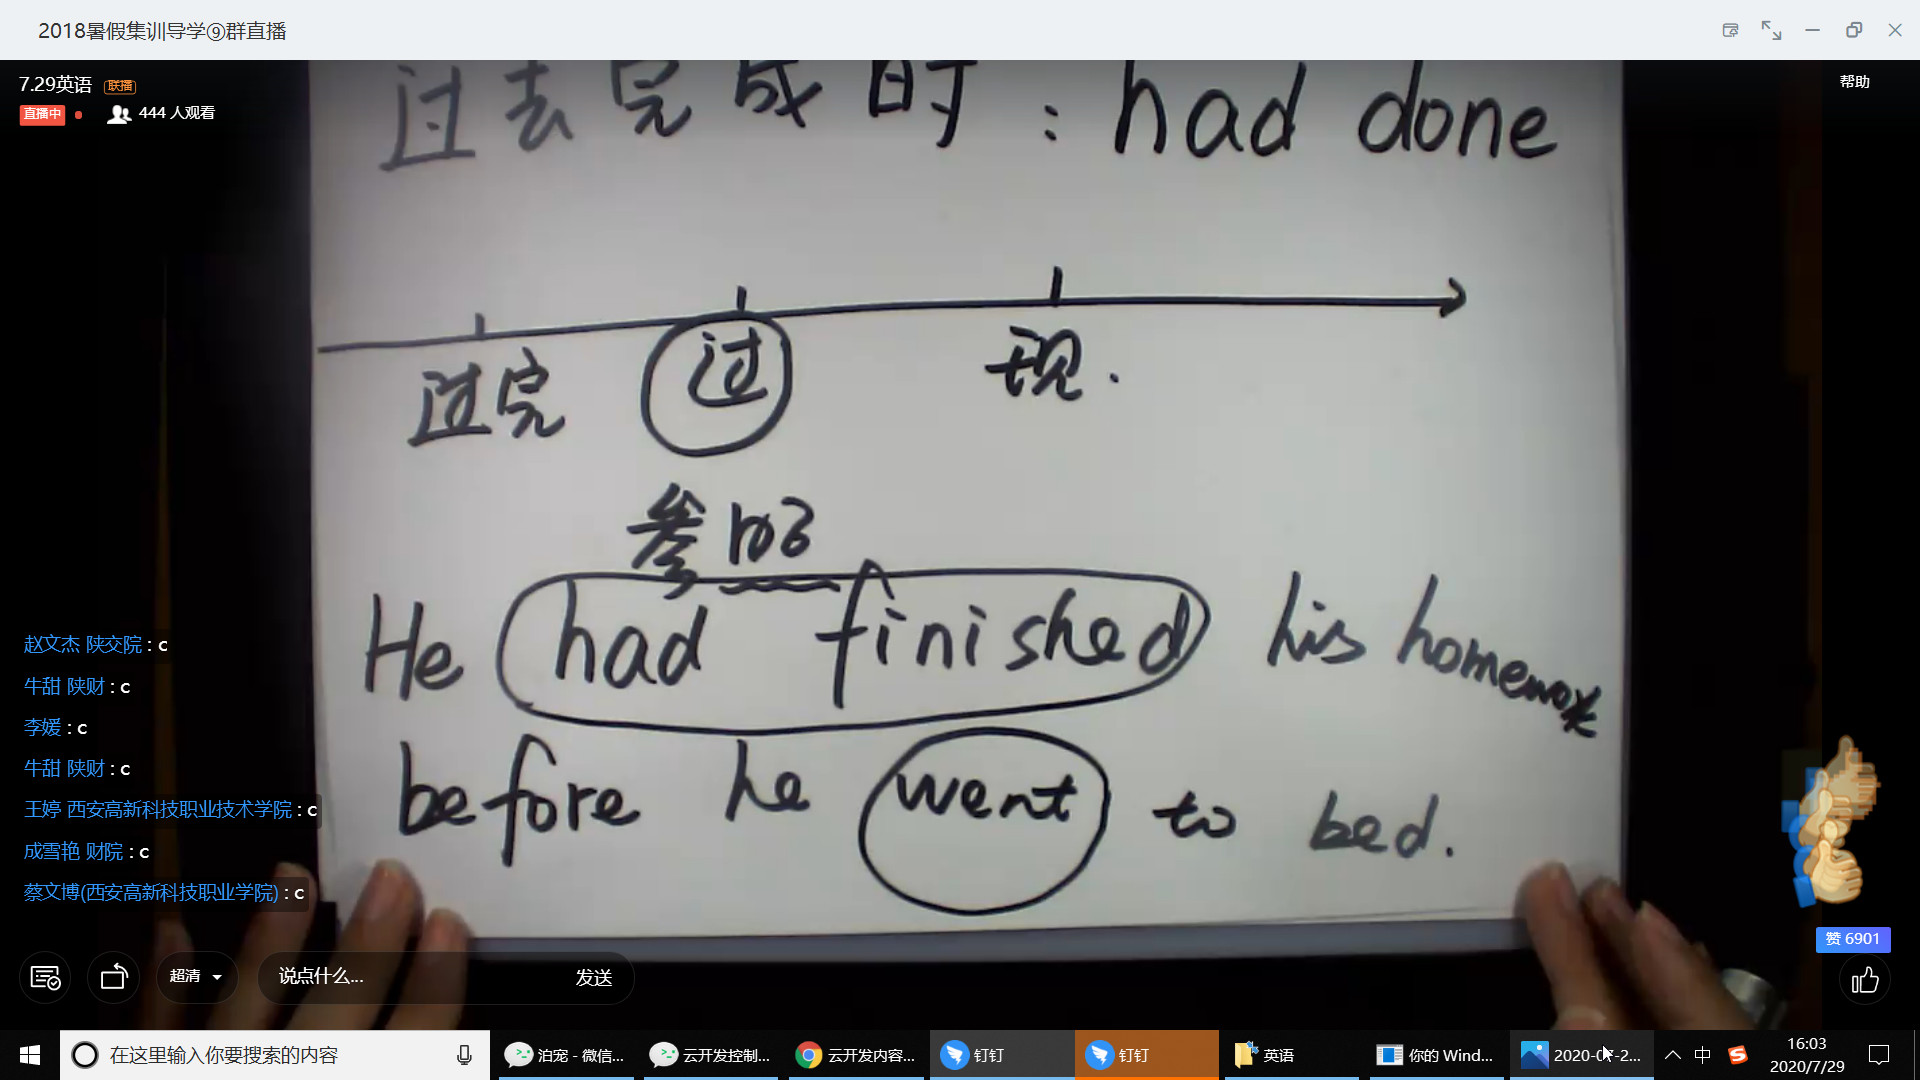 2018暑假集训导学⑨群直播
7.29英语 联播
直播中 444 人观看
帮助
过去完成时：had done
过完 过 现.
参103
He had finished his homework
before he went to bed.
赵文杰 陕交院 : c
牛甜 陕财 : c
李媛 : c
牛甜 陕财 : c
王婷 西安高新科技职业技术学院 : c
成雪艳 财院 : c
蔡文博(西安高新科技职业学院) : c
赞 6901
超清 说点什么... 发送
在这里输入你要搜索的内容 泊宠 - 微信... 云开发控制... 云开发内容... 钉钉 钉钉 英语 你的 Wind... 2020-07-2... 中 16:03
2020/7/29